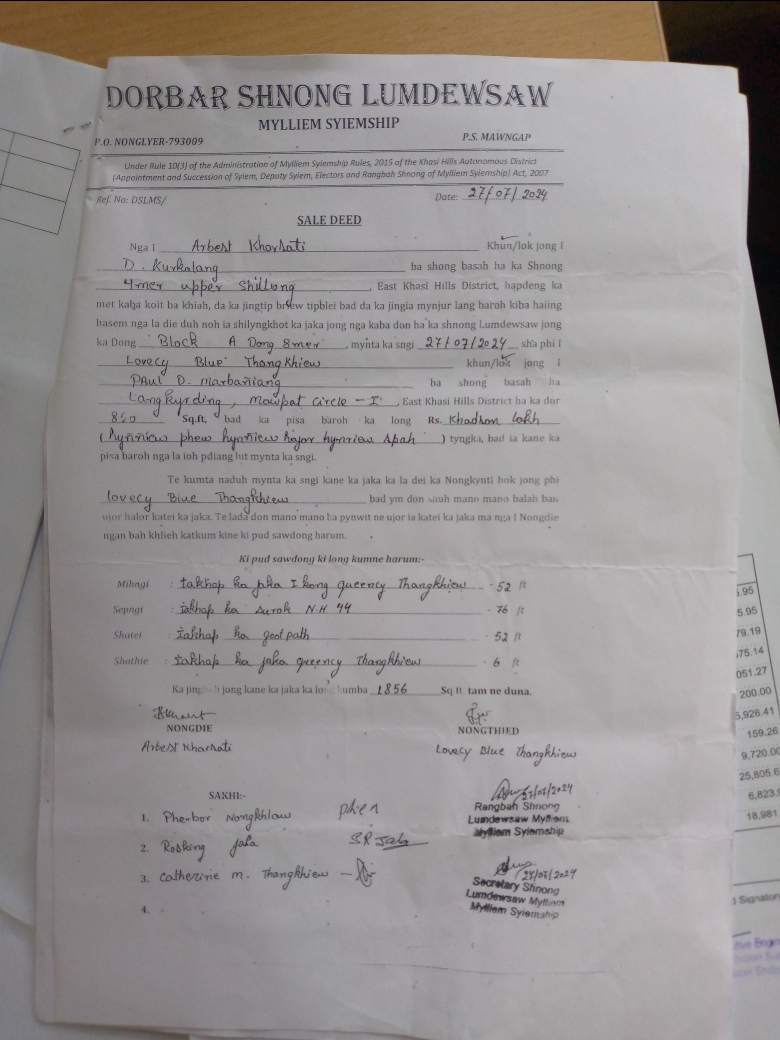 DORBAR SHNONG LUMDEWSAW
MYLLIEM SYIEMSHIP
P.O. NONGLYER-793009 P.S. MAWNGAP
Under Rule 10(3) of the Administration of Mylliem Syiemship Rules, 2015 of the Khasi Hills Autonomous District
(Appointment and Succession of Syiem, Deputy Syiem, Electors and Rangbah Shnong of Mylliem Syiemship) Act, 2007
Ref. No: DSLMS/ Date: 27/07/2024
SALE DEED
Nga I Arbest Kharsati Khun/lok jong I
D. Kurkalang ba shong basah ha ka Shnong
4mer upper Shillong, East Khasi Hills District, hapdeng ka
met kaba koit ba khiah, da ka jingtip briew tipblei bad da ka jingia mynjur lang baroh kiba haiing
hasem nga la die duh noh ia shilyngkhot ka jaka jong nga kaba don ha ka shnong Lumdewsaw jong
ka Dong Block A Dong 8mer, mynta ka sngi 27/07/2024 sha phi I
Lovecy Blue Thangkhiew khun/lok jong I
Paul D. Marbaniang ba shong basah ha
Langkyrding, Mawpat Circle - I, East Khasi Hills District ha ka dor
Sq.ft, bad ka pisa baroh ka long Rs. Khadhan lakh
(hynñiew phew hynñiew hajar hynñiew spah) tyngka, bad ia kane ka
pisa baroh nga la ioh pdiang lut mynta ka sngi.
Te kumta naduh mynta ka sngi kane ka jaka ka la dei ka Nongkynti hok jong phi
lovecy Blue Thangkhiew bad ym don shuh mano mano balah ban
ujor halor katei ka jaka. Te lada don mano mano ba pynwit ne ujor ia katei ka jaka ma nga I Nongdie
ngan bah khlieh katkum kine ki pud sawdong harum.
Ki pud sawdong ki long kumne harum:-
Mihngi : ïakhap ka jaka I kong queency Thangkhiew - 52 ft
Sepngi : ïakhap ka surok N.H 44 - 76 ft
Shatei : ïakhap ka foot path - 52 ft
Shathie : ïakhap ka jaka queency Thangkhiew - 6 ft
Ka jong kane ka jaka ka long kumba 1856 Sq ft tam ne duna.
NONGDIE NONGTHIED
Arbest Kharsati Lovecy Blue Thangkhiew
SAKHI:-
27/07/2024
Rangbah Shnong
Lumdewsaw Mylliem
Mylliem Syiemship
1. Pherbor Nongkhlaw
2. Rosking jala
3. Catherine M. Thangkhiew
27/07/2024
Secretary Shnong
Lumdewsaw Mylliem
Mylliem Syiemship
4.
5.95
5.95
79.19
75.14
051.27
200.00
5,926.41
159.26
9,720.00
25,805.6
6,823.9
18,981